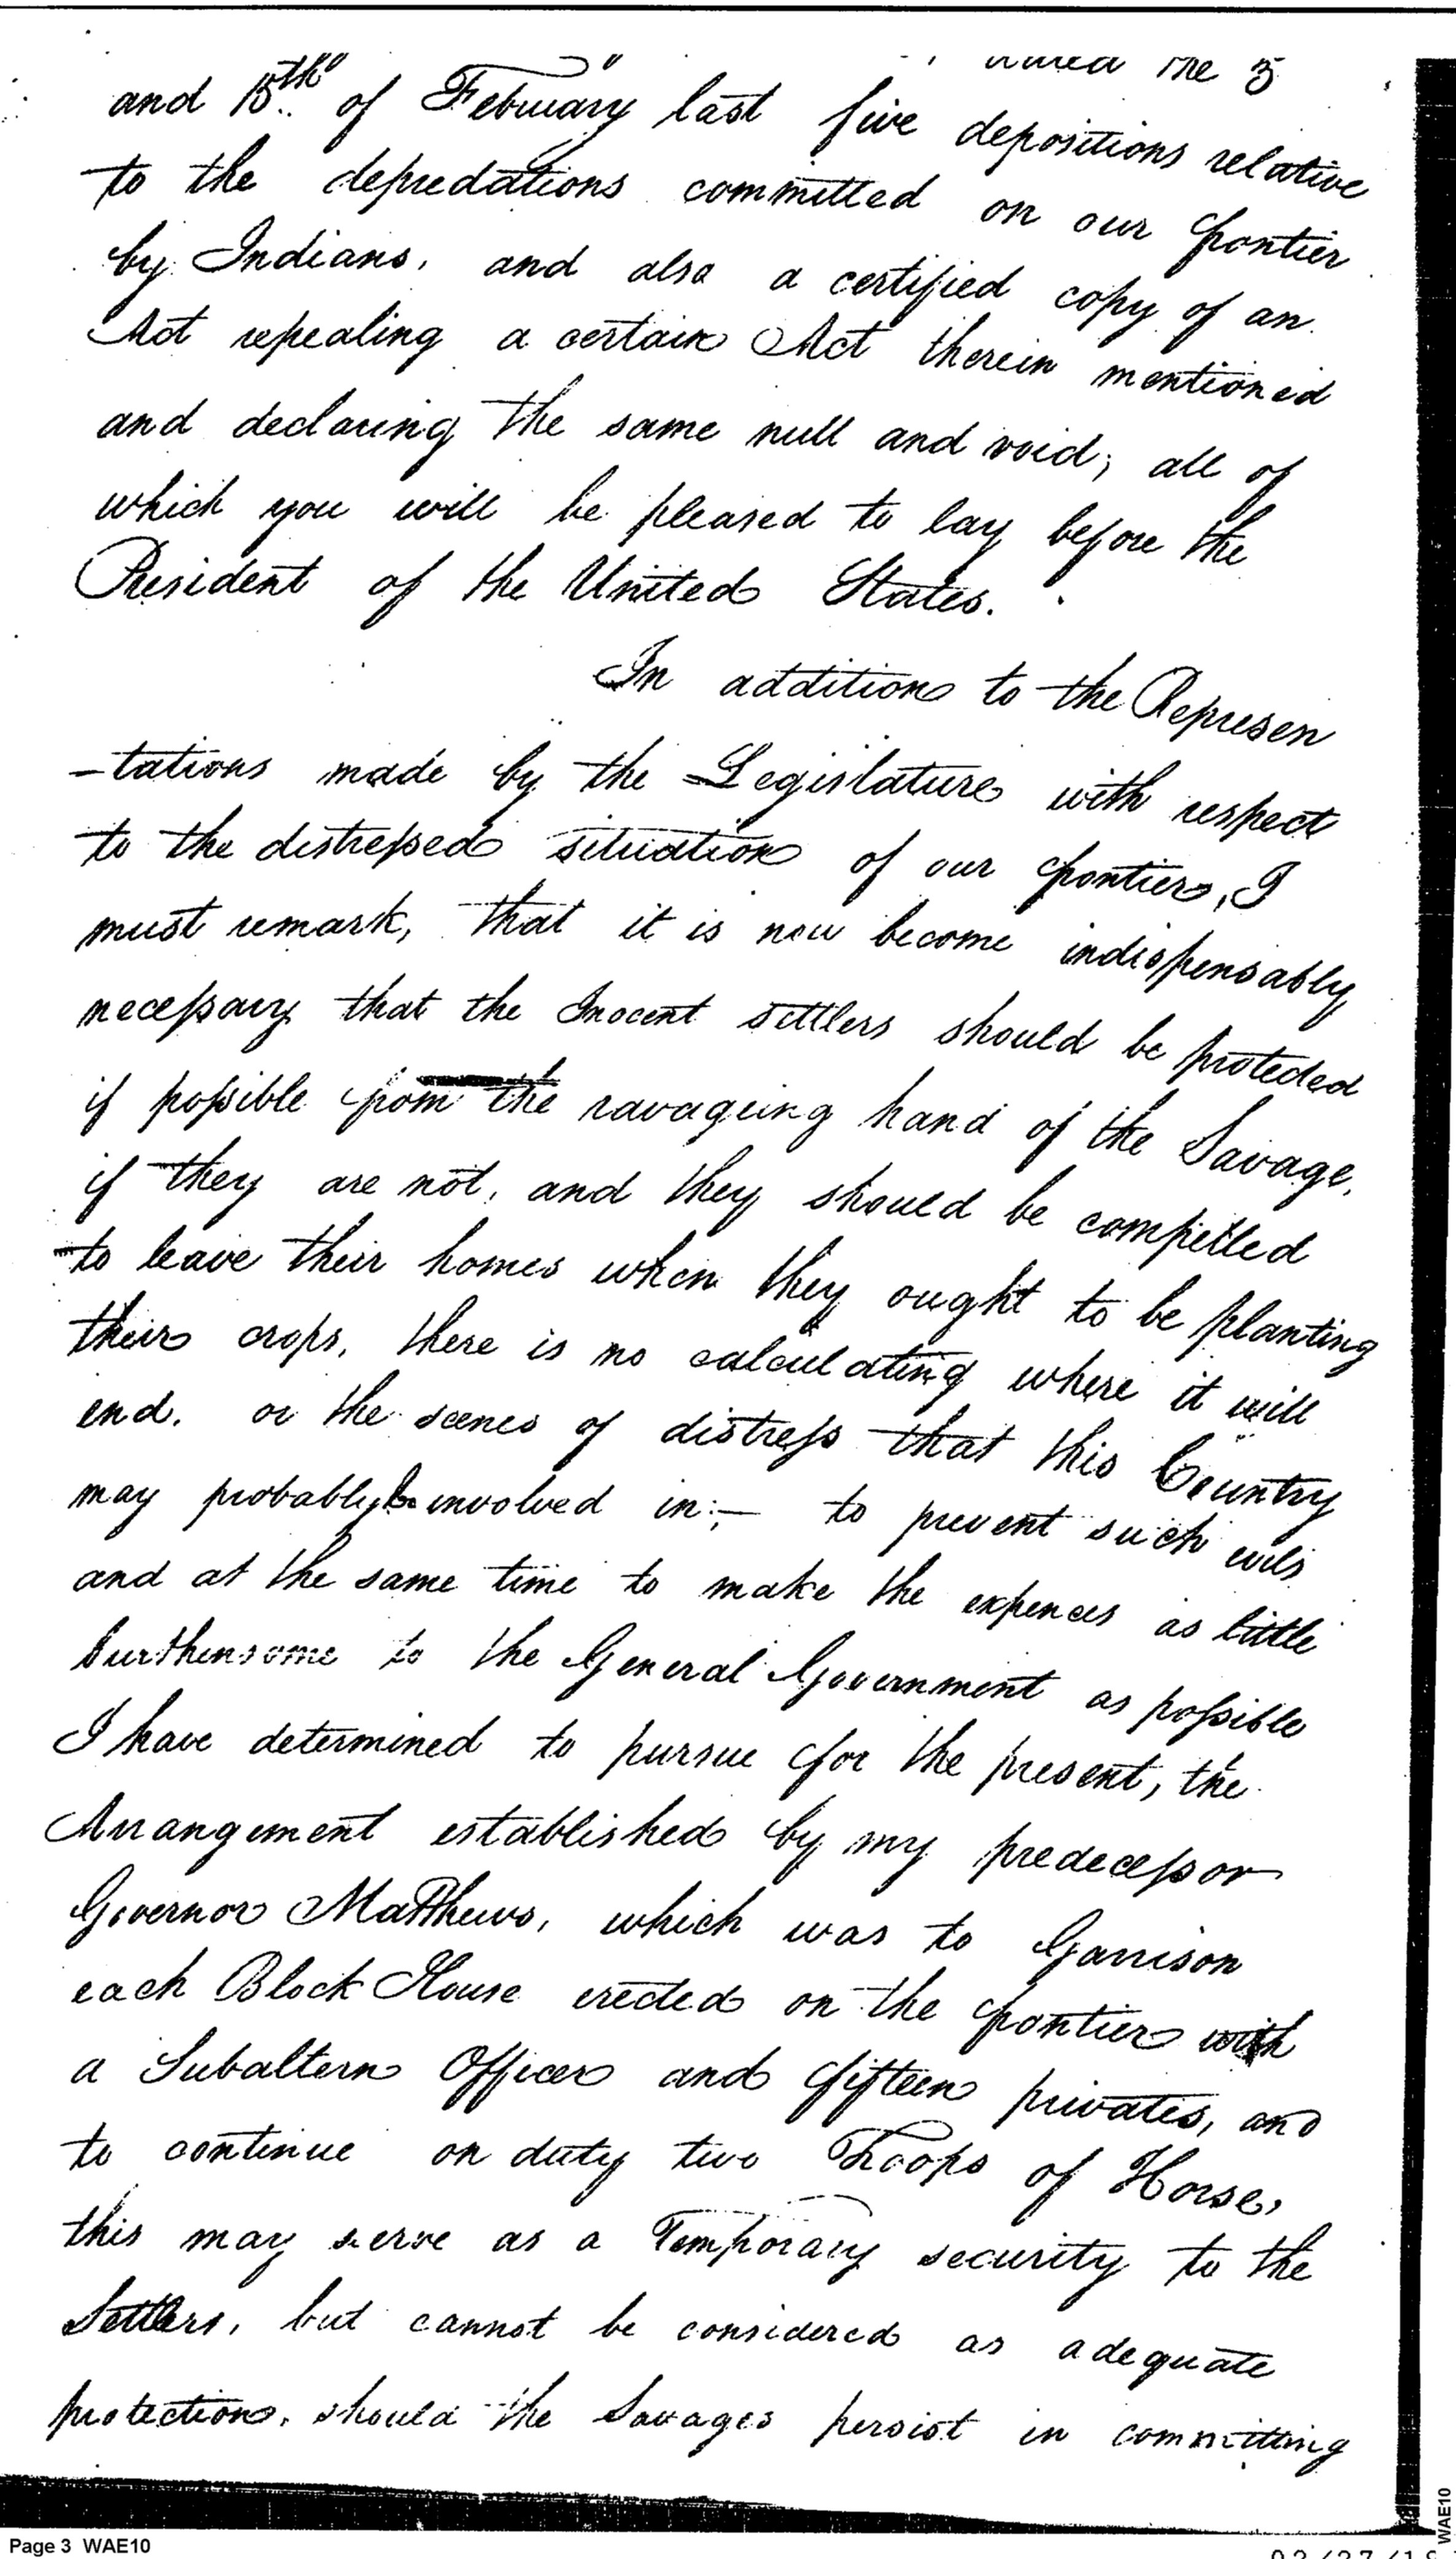 the 5
and 15th of February last five depositions relative
to the depredations committed on our frontier
by Indians, and also a certified copy of an
Act repealing a certain Act therein mentioned
and declaring the same null and void; all of
which you will be pleased to lay before the
President of the United States.
In addition to the Represen
-tations made by the Legislature with respect
to the distressed situation of our frontier, I
must remark, that it is now become indispensably
necessary that the Inocent settlers should be protected
if possible from the ravageing hand of the Savage,
if they are not, and they should be compelled
to leave their homes when they ought to be planting
their crops, there is no calculating where it will
end. or the scenes of distress that this Country
may probably be involved in:- to prevent such evils
and at the same time to make the expences as little
burthensome to the General Government as possible
I have determined to pursue for the present, the
Arrangement established by my predecessor
Governor Matthews, which was to Garrison
each Block House erected on the frontier with
a Subaltern Officer and fifteen privates, and
to continue on duty two Troops of Horse,
this may serve as a Temporary security to the
Settlers, but cannot be considered as adequate
protection, should the Savages persist in committing
Page 3 WAE10
WAE10